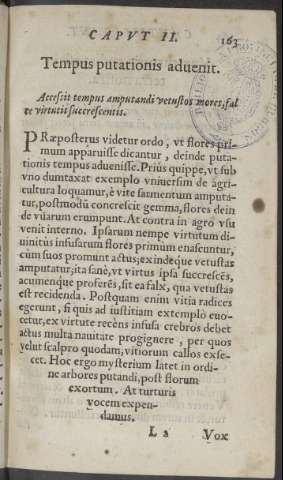 CAPVT II.
163
Tempus putationis advenit.
Accessit tempus amputandi vetustos mores, fal
ce virtutis succrescentis.
PRæposterus videtur ordo, vt flores pri-
mum apparuisse dicantur, deinde puta-
tionis tempus advenisse. Priùs quippe, vt sub
vno dumtaxat exemplo vniuersim de agri-
cultura loquamur, è vite sarmentum amputa-
tur, postmodũ concrescit gemma, flores dein
de vuarum erumpunt. At contra in agro vsu
venit interno. Ipsarum nempe virtutum di-
uinitùs infusarum flores primùm enascuntur,
cùm suos promunt actus; exindeque vetustas
amputatur, ita sanè, vt virtus ipsa succrescẽs,
acumenque proferẽs, sit ea falx, qua vetustas
est recidenda. Postquam enim vitia radices
egerunt, si quis ad iustitiam extemplò euo-
cetur, ex virtute recèns infusa crebros debet
actus multa nauitate progignere, per quos
velut scalpro quodam, vitiorum callos exse-
cet. Hoc ergo mysterium latet in ordi-
ne arbores putandi, post florum
exortum. At turturis
vocem expen-
damus.
L 2
Vox